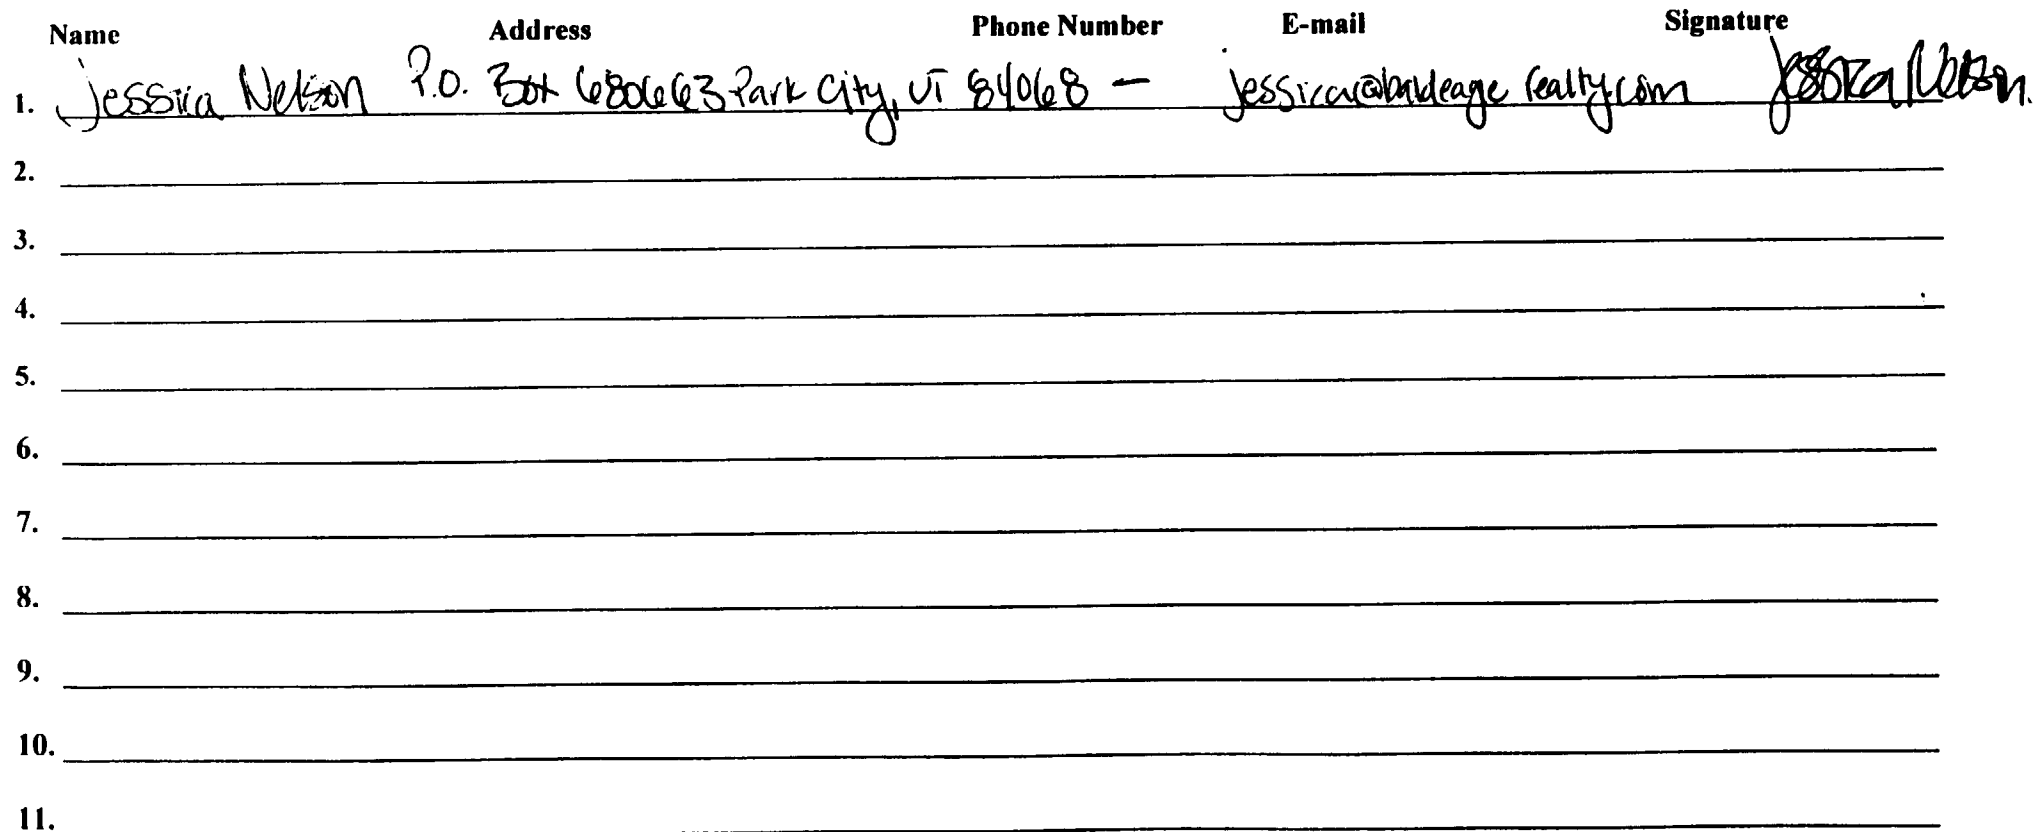 Name Address Phone Number E-mail Signature
1. Jessica Nelson P.O. Box 680663 Park City, UT 84068 — jessica@baldeagle realty.com Jessica Nelson
2.
3.
4.
5.
6.
7.
8.
9.
10.
11.